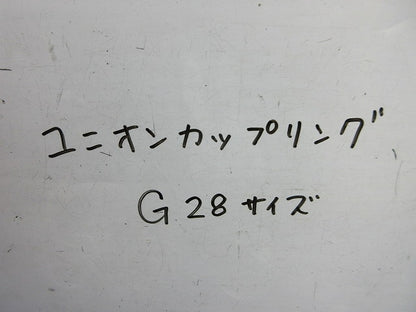 ユニオンカップリング
G28サイズ